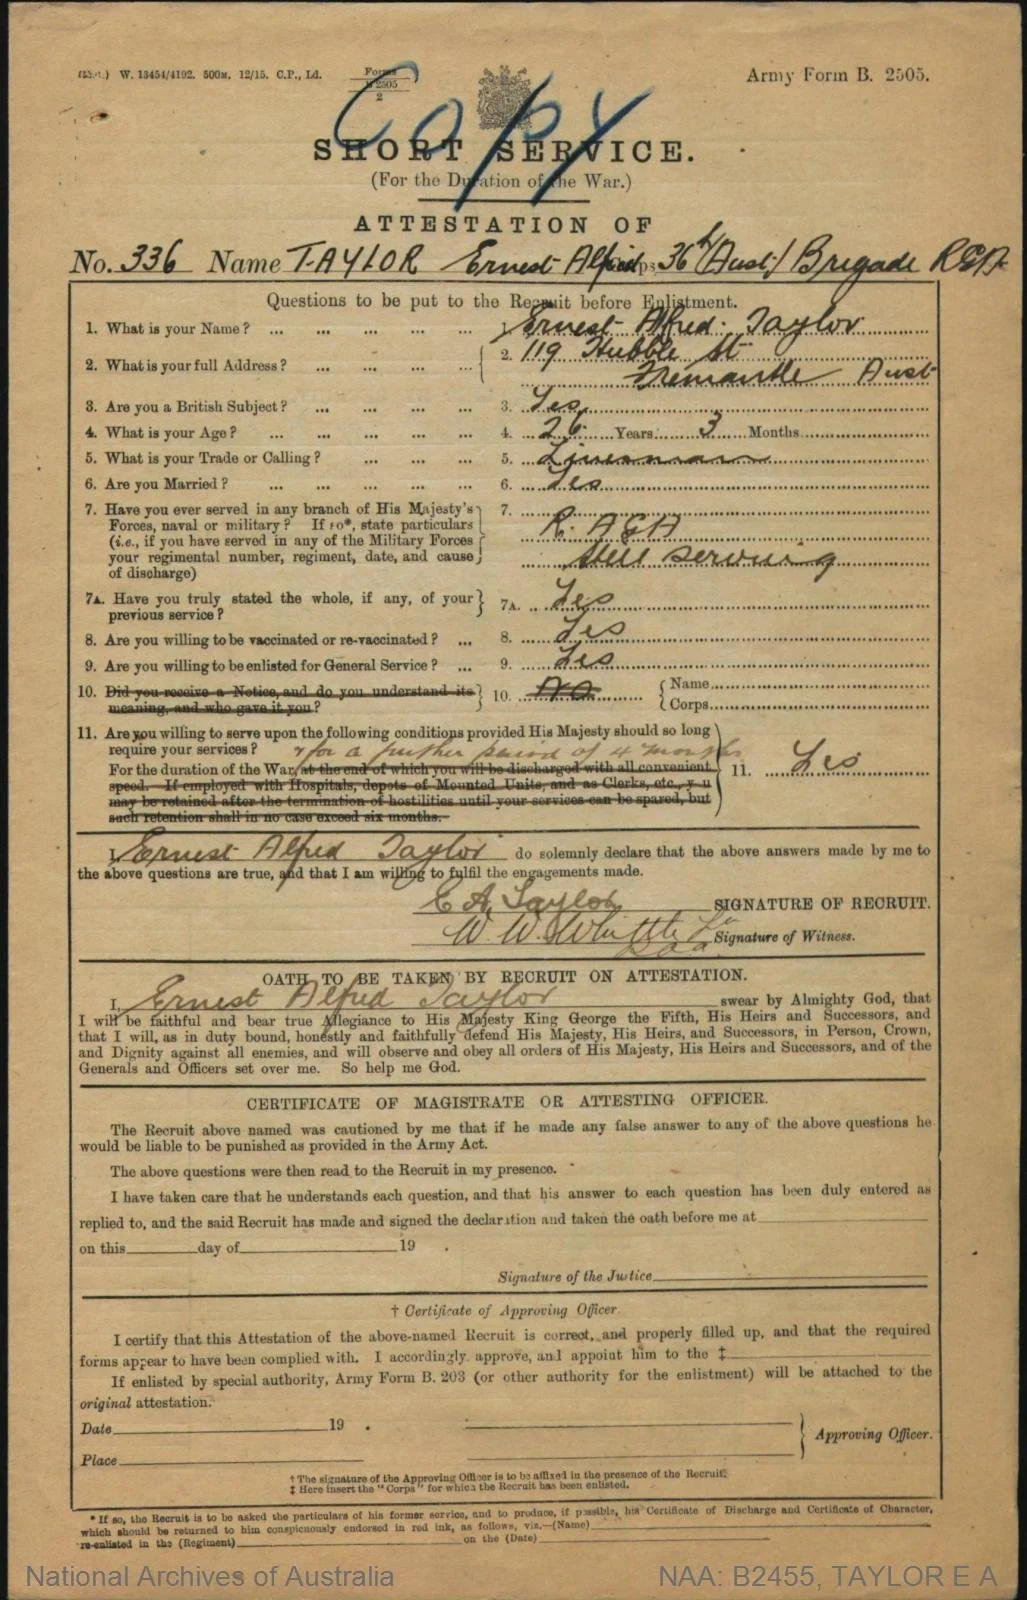 W. 13454/4192. 500M. 12/15. C.P., Ld.
Forms
B 2505
2
Army Form B. 2505.
Copy
SHORT SERVICE.
(For the Duration of the War.)
ATTESTATION OF
No. 336 Name TAYLOR Ernest Alfred Corps 36th (Aust) Brigade RGA
Questions to be put to the Recruit before Enlistment.
1. What is your Name? ... ... ... ... ... 1. Ernest Alfred Taylor
2. What is your full Address? ... ... ... ... 2. 119 Hubble St
Fremantle Aust
3. Are you a British Subject? ... ... ... ... 3. Yes
4. What is your Age? ... ... ... ... ... 4. 26 Years 3 Months
5. What is your Trade or Calling? ... ... ... 5. Linesman
6. Are you Married? ... ... ... ... ... 6. Yes
7. Have you ever served in any branch of His Majesty's 7.
Forces, naval or military? If so*, state particulars R. AGA
(i.e., if you have served in any of the Military Forces
your regimental number, regiment, date, and cause still serving
of discharge)
7A. Have you truly stated the whole, if any, of your 7A. Yes
previous service?
8. Are you willing to be vaccinated or re-vaccinated? ... 8. Yes
9. Are you willing to be enlisted for General Service? ... 9. Yes
10. Did you receive a Notice, and do you understand its 10. No Name
meaning, and who gave it you? Corps
11. Are you willing to serve upon the following conditions provided His Majesty should so long
require your services? & for a further period of 4 months
For the duration of the War, at the end of which you will be discharged with all convenient 11. Yes
speed. If employed with Hospitals, depots of Mounted Units, and as Clerks, etc., you
may be retained after the termination of hostilities until your services can be spared, but
such retention shall in no case exceed six months.
I, Ernest Alfred Taylor do solemnly declare that the above answers made by me to
the above questions are true, and that I am willing to fulfil the engagements made.
E A Taylor SIGNATURE OF RECRUIT.
W. W. Whittle Signature of Witness.
OATH TO BE TAKEN BY RECRUIT ON ATTESTATION.
I, Ernest Alfred Taylor swear by Almighty God, that
I will be faithful and bear true Allegiance to His Majesty King George the Fifth, His Heirs and Successors, and
that I will, as in duty bound, honestly and faithfully defend His Majesty, His Heirs, and Successors, in Person, Crown,
and Dignity against all enemies, and will observe and obey all orders of His Majesty, His Heirs and Successors, and of the
Generals and Officers set over me. So help me God.
CERTIFICATE OF MAGISTRATE OR ATTESTING OFFICER.
The Recruit above named was cautioned by me that if he made any false answer to any of the above questions he
would be liable to be punished as provided in the Army Act.
The above questions were then read to the Recruit in my presence.
I have taken care that he understands each question, and that his answer to each question has been duly entered as
replied to, and the said Recruit has made and signed the declaration and taken the oath before me at
on this day of 19 .
Signature of the Justice
† Certificate of Approving Officer.
I certify that this Attestation of the above-named Recruit is correct, and properly filled up, and that the required
forms appear to have been complied with. I accordingly approve, and appoint him to the ‡
If enlisted by special authority, Army Form B. 203 (or other authority for the enlistment) will be attached to the
original attestation.
Date 19 .
Approving Officer.
Place
† The signature of the Approving Officer is to be affixed in the presence of the Recruit.
‡ Here insert the "Corps" for which the Recruit has been enlisted.
* If so, the Recruit is to be asked the particulars of his former service, and to produce, if possible, his Certificate of Discharge and Certificate of Character,
which should be returned to him conspicuously endorsed in red ink, as follows, viz.—(Name)
re-enlisted in the (Regiment) on the (Date)
National Archives of Australia NAA: B2455, TAYLOR E A